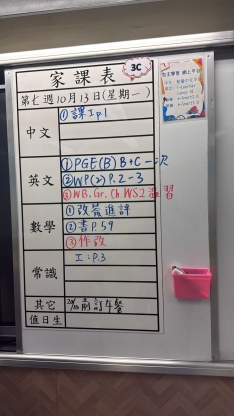 家課表
3C
第七週10月13日(星期一)
中文
①課工p1
英文
①PGE(B) B+C一次
②WP(2) P.2-3
③WB.Gr.Ch WS2 溫習
數學
①改
②書P.59
③作改
常識
工:P.3
其它
前訂午餐
值日生
自主學習 網上平台